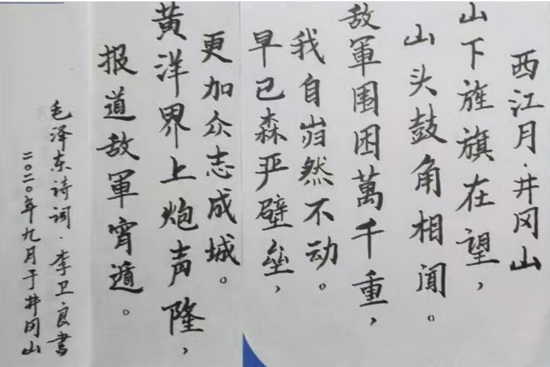 西江月·井冈山
山下旌旗在望，
山头鼓角相闻。
敌軍围困萬千重，
我自岿然不动。
早已森严壁垒，
更加众志成城。
黄洋界上炮声隆，
报道敌軍宵遁。
毛泽东诗词·李卫良書
二〇二〇年九月于井冈山